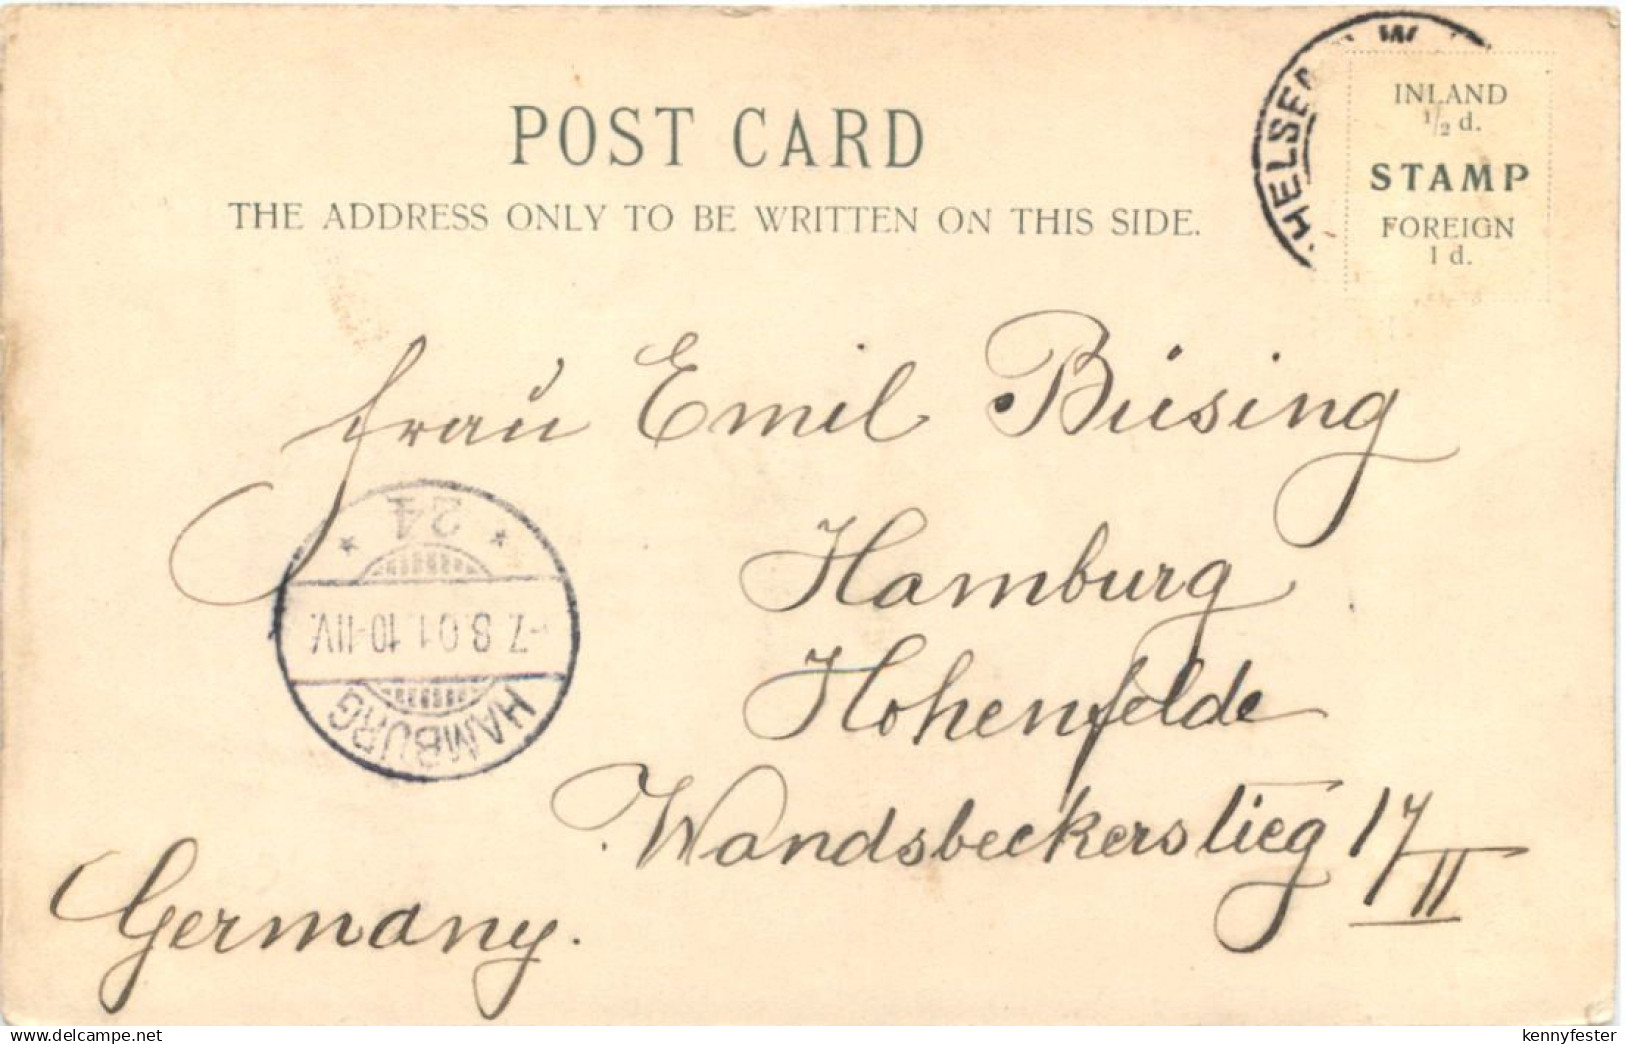 POST CARD
THE ADDRESS ONLY TO BE WRITTEN ON THIS SIDE.
INLAND
1/2 d.
STAMP
FOREIGN
1 d.
HELSEA
W
Frau Emil Büsing
Hamburg
Hohenfelde
Wandsbeckerstieg 17
II
Germany.
HAMBURG
-7.8.01.10-11V.
* 24 *
delcampe.net
kennyfester